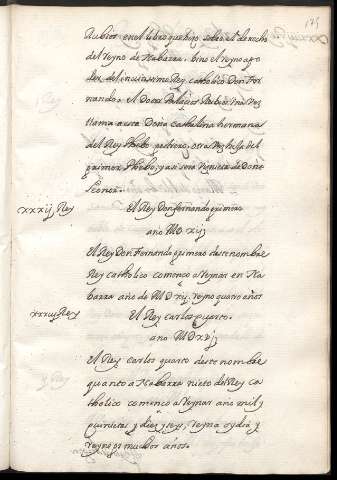 175
Rubios en el libro que hizo sobre el derecho
del reyno de Nabarra. bino el reyno a po
der del inuictissimo Rey catholico Don Fer
nando. el Doctor Palacios Rubios
llama a esta Doña Cathelina hermana
del Rey Phebo postrero, otros hija del
primer Phebo, y assi seria nieta de Doña
Leonor.
xxxij Rey
El Rey Don fernando primero
año MDxij
El Rey Don Fernando primero deste nombre
Rey catholico començo a Reynar en Na
barra año de MDxij reyno quatro años
xxxiij Rey
El Rey carlos quarto.
año MDxvj
El Rey carlos quarto deste nombre
quanto a Nabarra nieto del Rey ca
tholico començo a Reynar año mil y
quinientos y diez y seys, reyna oy dia y
reyne por muchos años.